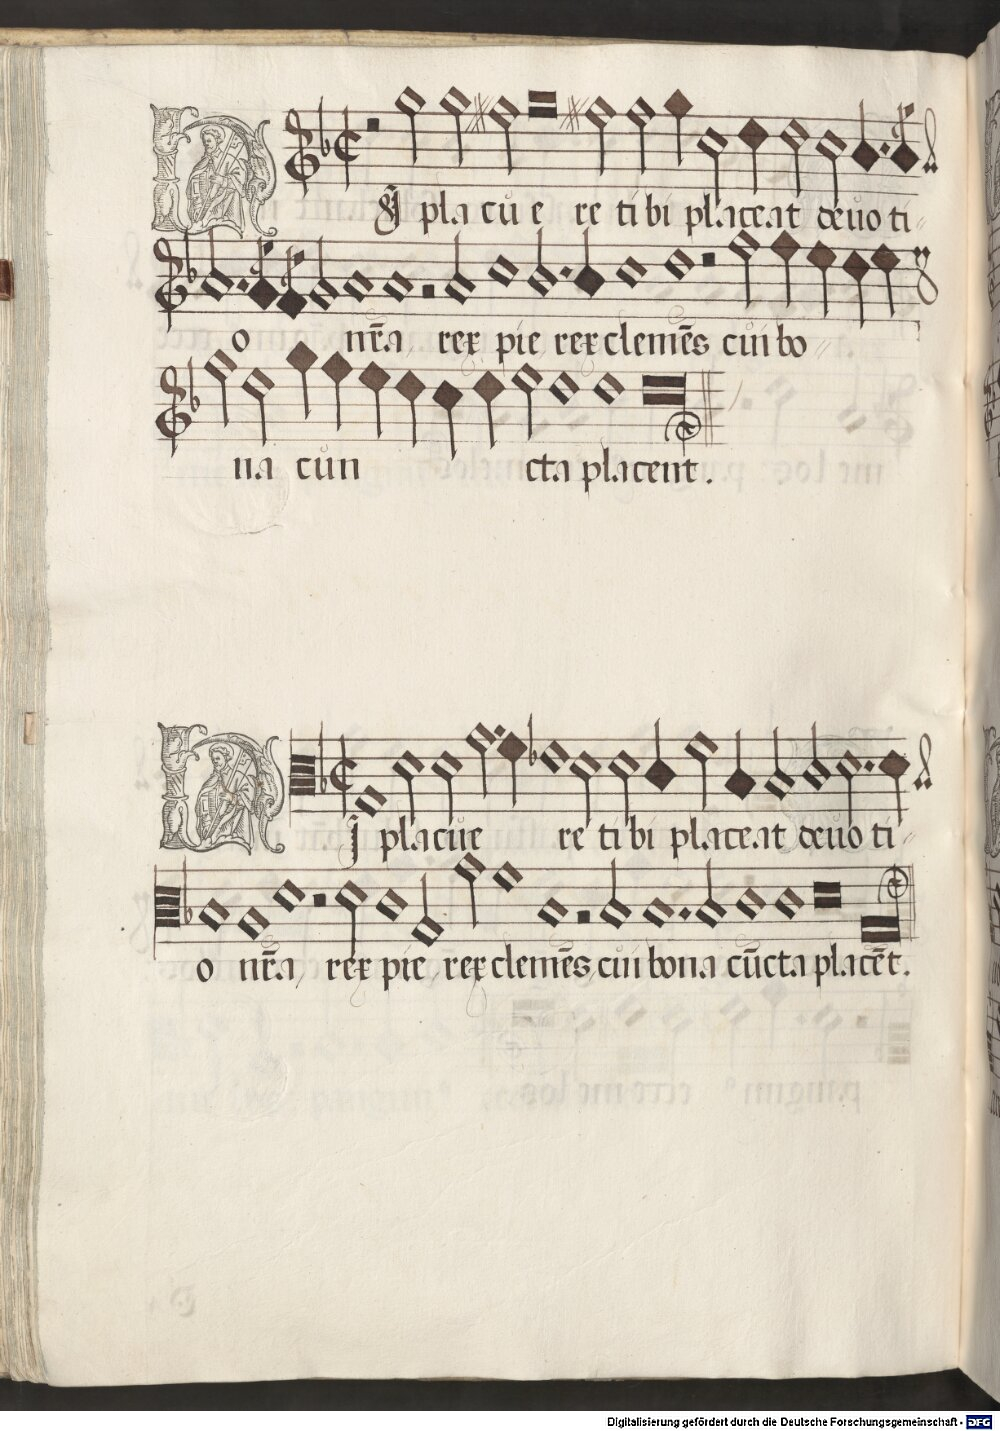 HI placu e re tibi placeat deuoti
o nr̄a rex pie rex clemēs cui bo
na cun cta placent.
HI placue re tibi placeat deuoti
o nr̄a rex pie rex clemēs cui bona cūcta placēt.
Digitalisierung gefördert durch die Deutsche Forschungsgemeinschaft - DFG